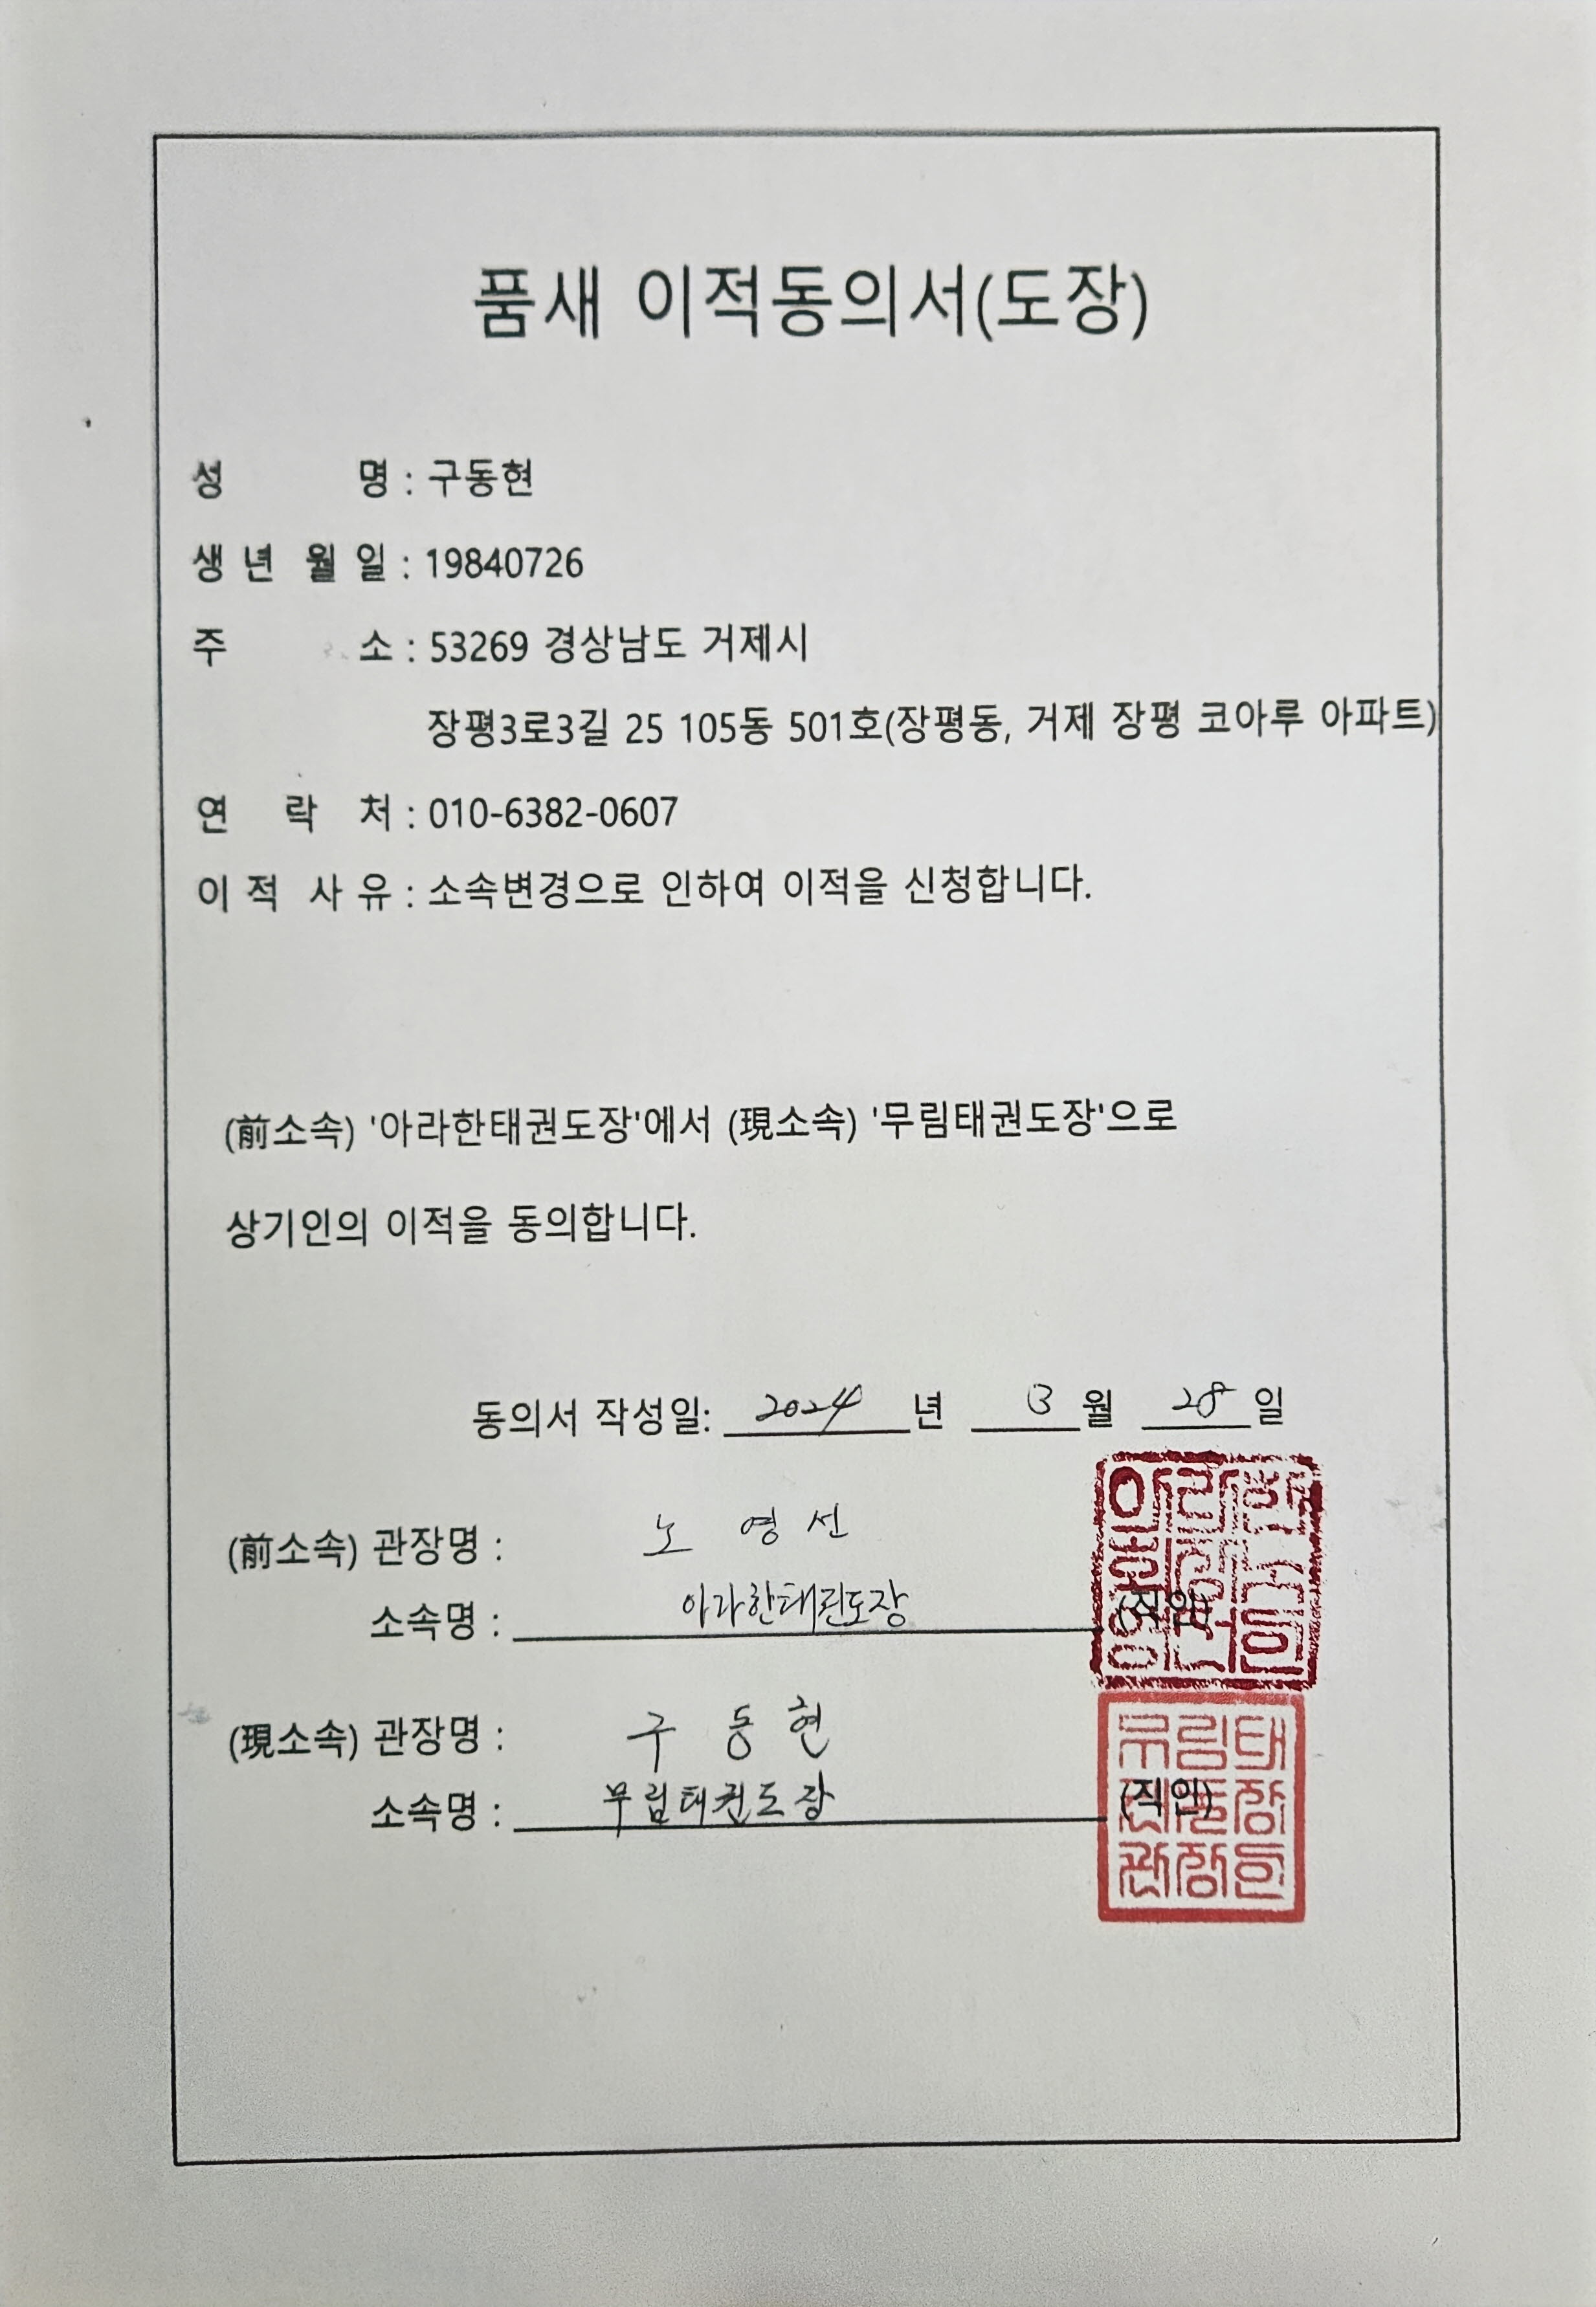 품새 이적동의서(도장)
성 명 : 구동현
생 년 월 일 : 19840726
주 소 : 53269 경상남도 거제시
장평3로3길 25 105동 501호(장평동, 거제 장평 코아루 아파트)
연 락 처 : 010-6382-0607
이 적 사 유 : 소속변경으로 인하여 이적을 신청합니다.
(前소속) '아라한태권도장'에서 (現소속) '무림태권도장'으로
상기인의 이적을 동의합니다.
동의서 작성일: 2024 년 3 월 28 일
(前소속) 관장명 : 노 영 선
소속명 : 아라한태권도장 (직인)
(現소속) 관장명 : 구 동 현
소속명 : 무림태권도장 (직인)
무림태
권도장
관장인